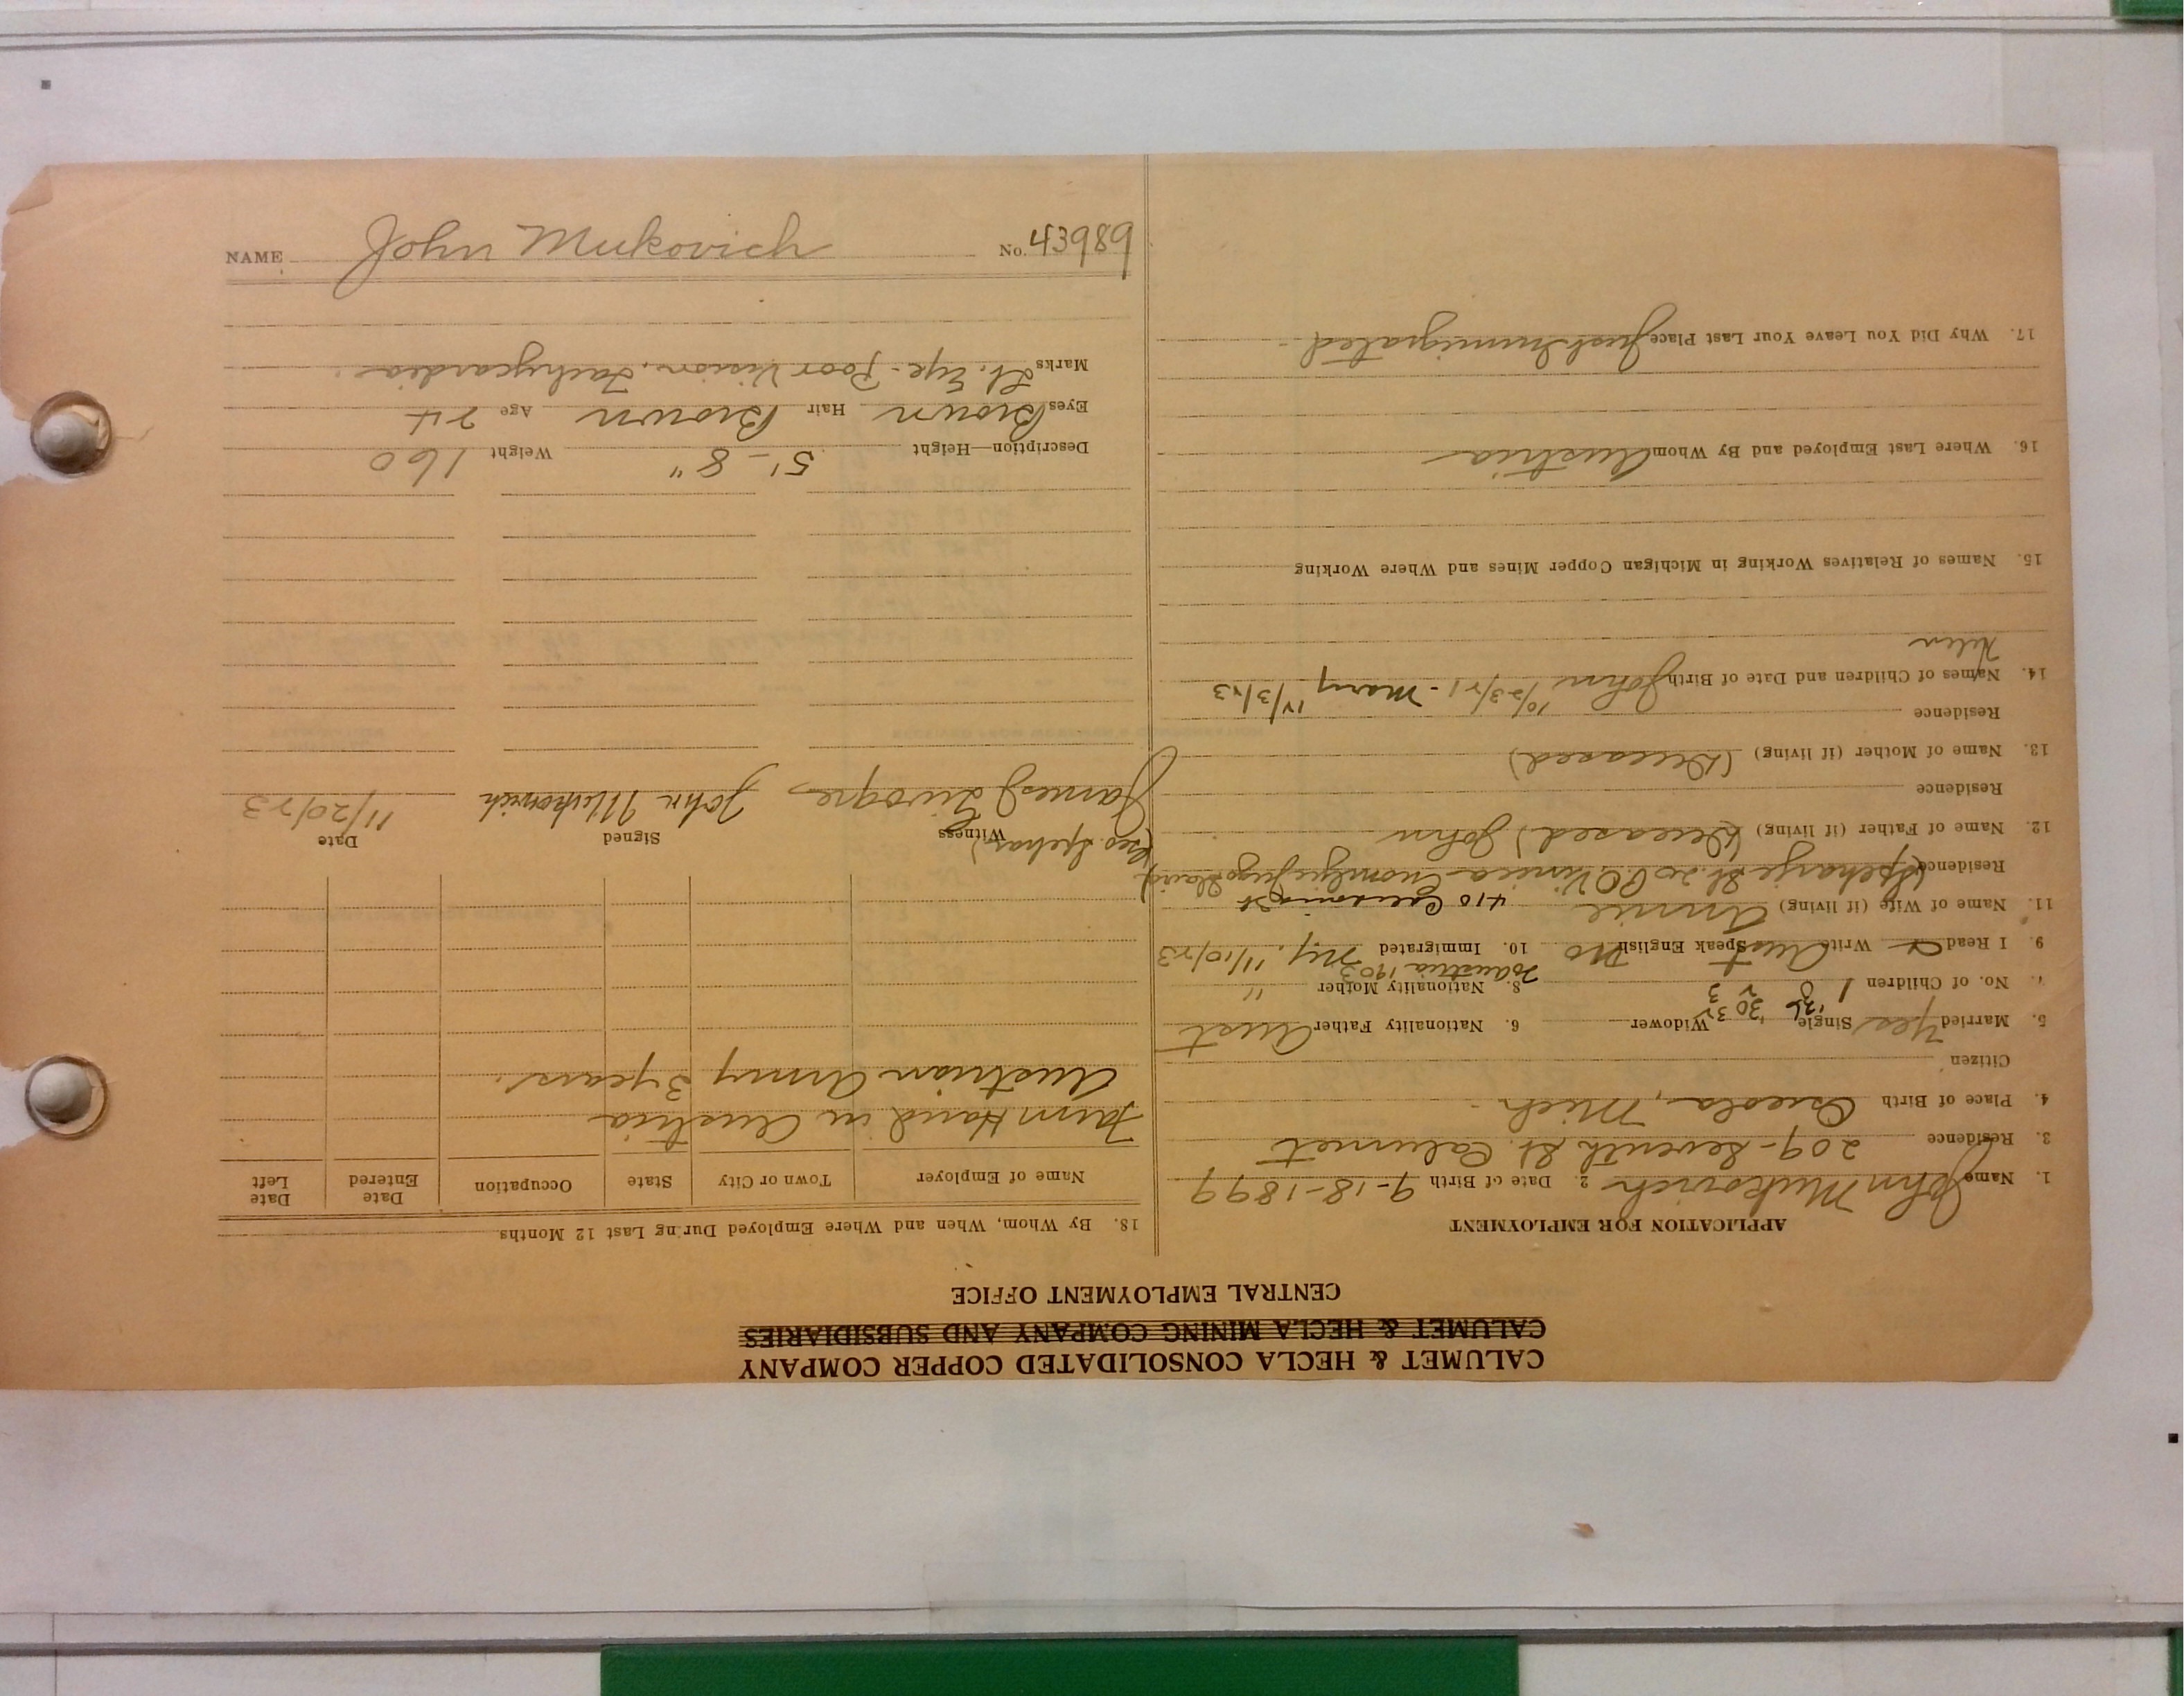 CALUMET & HECLA CONSOLIDATED COPPER COMPANY
CALUMET & HECLA MINING COMPANY AND SUBSIDIARIES
CENTRAL EMPLOYMENT OFFICE
APPLICATION FOR EMPLOYMENT
1. Name John Mukovich 2. Date of Birth 9-18-1899
3. Residence 209- Seventh St. Calumet
4. Place of Birth Osceola, Mich
Citizen
5. Married Yes Single Widower 6. Nationality Father Aust
'36 '30 32
7. No. of Children 1 3 2 3 8. Nationality Mother "
To Austria 1903
9. I Read Write Aust Speak English No 10. Immigrated Ny. 11/10/23
11. Name of Wife (if living) Annie 410 St
Residence (Speharje St. 20 P.O. Vinica Jugoslavia)
12. Name of Father (if living) (Deceased) John
Residence
13. Name of Mother (if living) (Deceased)
Residence
14. Names of Children and Date of Birth John 10/23/21 - Mary 12/3/23
Helen
15. Names of Relatives Working in Michigan Copper Mines and Where Working
16. Where Last Employed and By Whom Austria
17. Why Did You Leave Your Last Place Just Immigrated
18. By Whom, When and Where Employed During Last 12 Months
Name of Employer Town or City State Occupation Date Entered Date Left
Farm Hand in Austria
Austrian Army 3 years.
Witness Signed Date
(Geo. Spehar)
James John Mukovich 11/20/23
Description—Height 5'-8" Weight 160
Eyes Brown Hair Brown Age 24
Marks Lt. Eye - Poor Vision, Tachycardia
NAME John Mukovich No. 43989